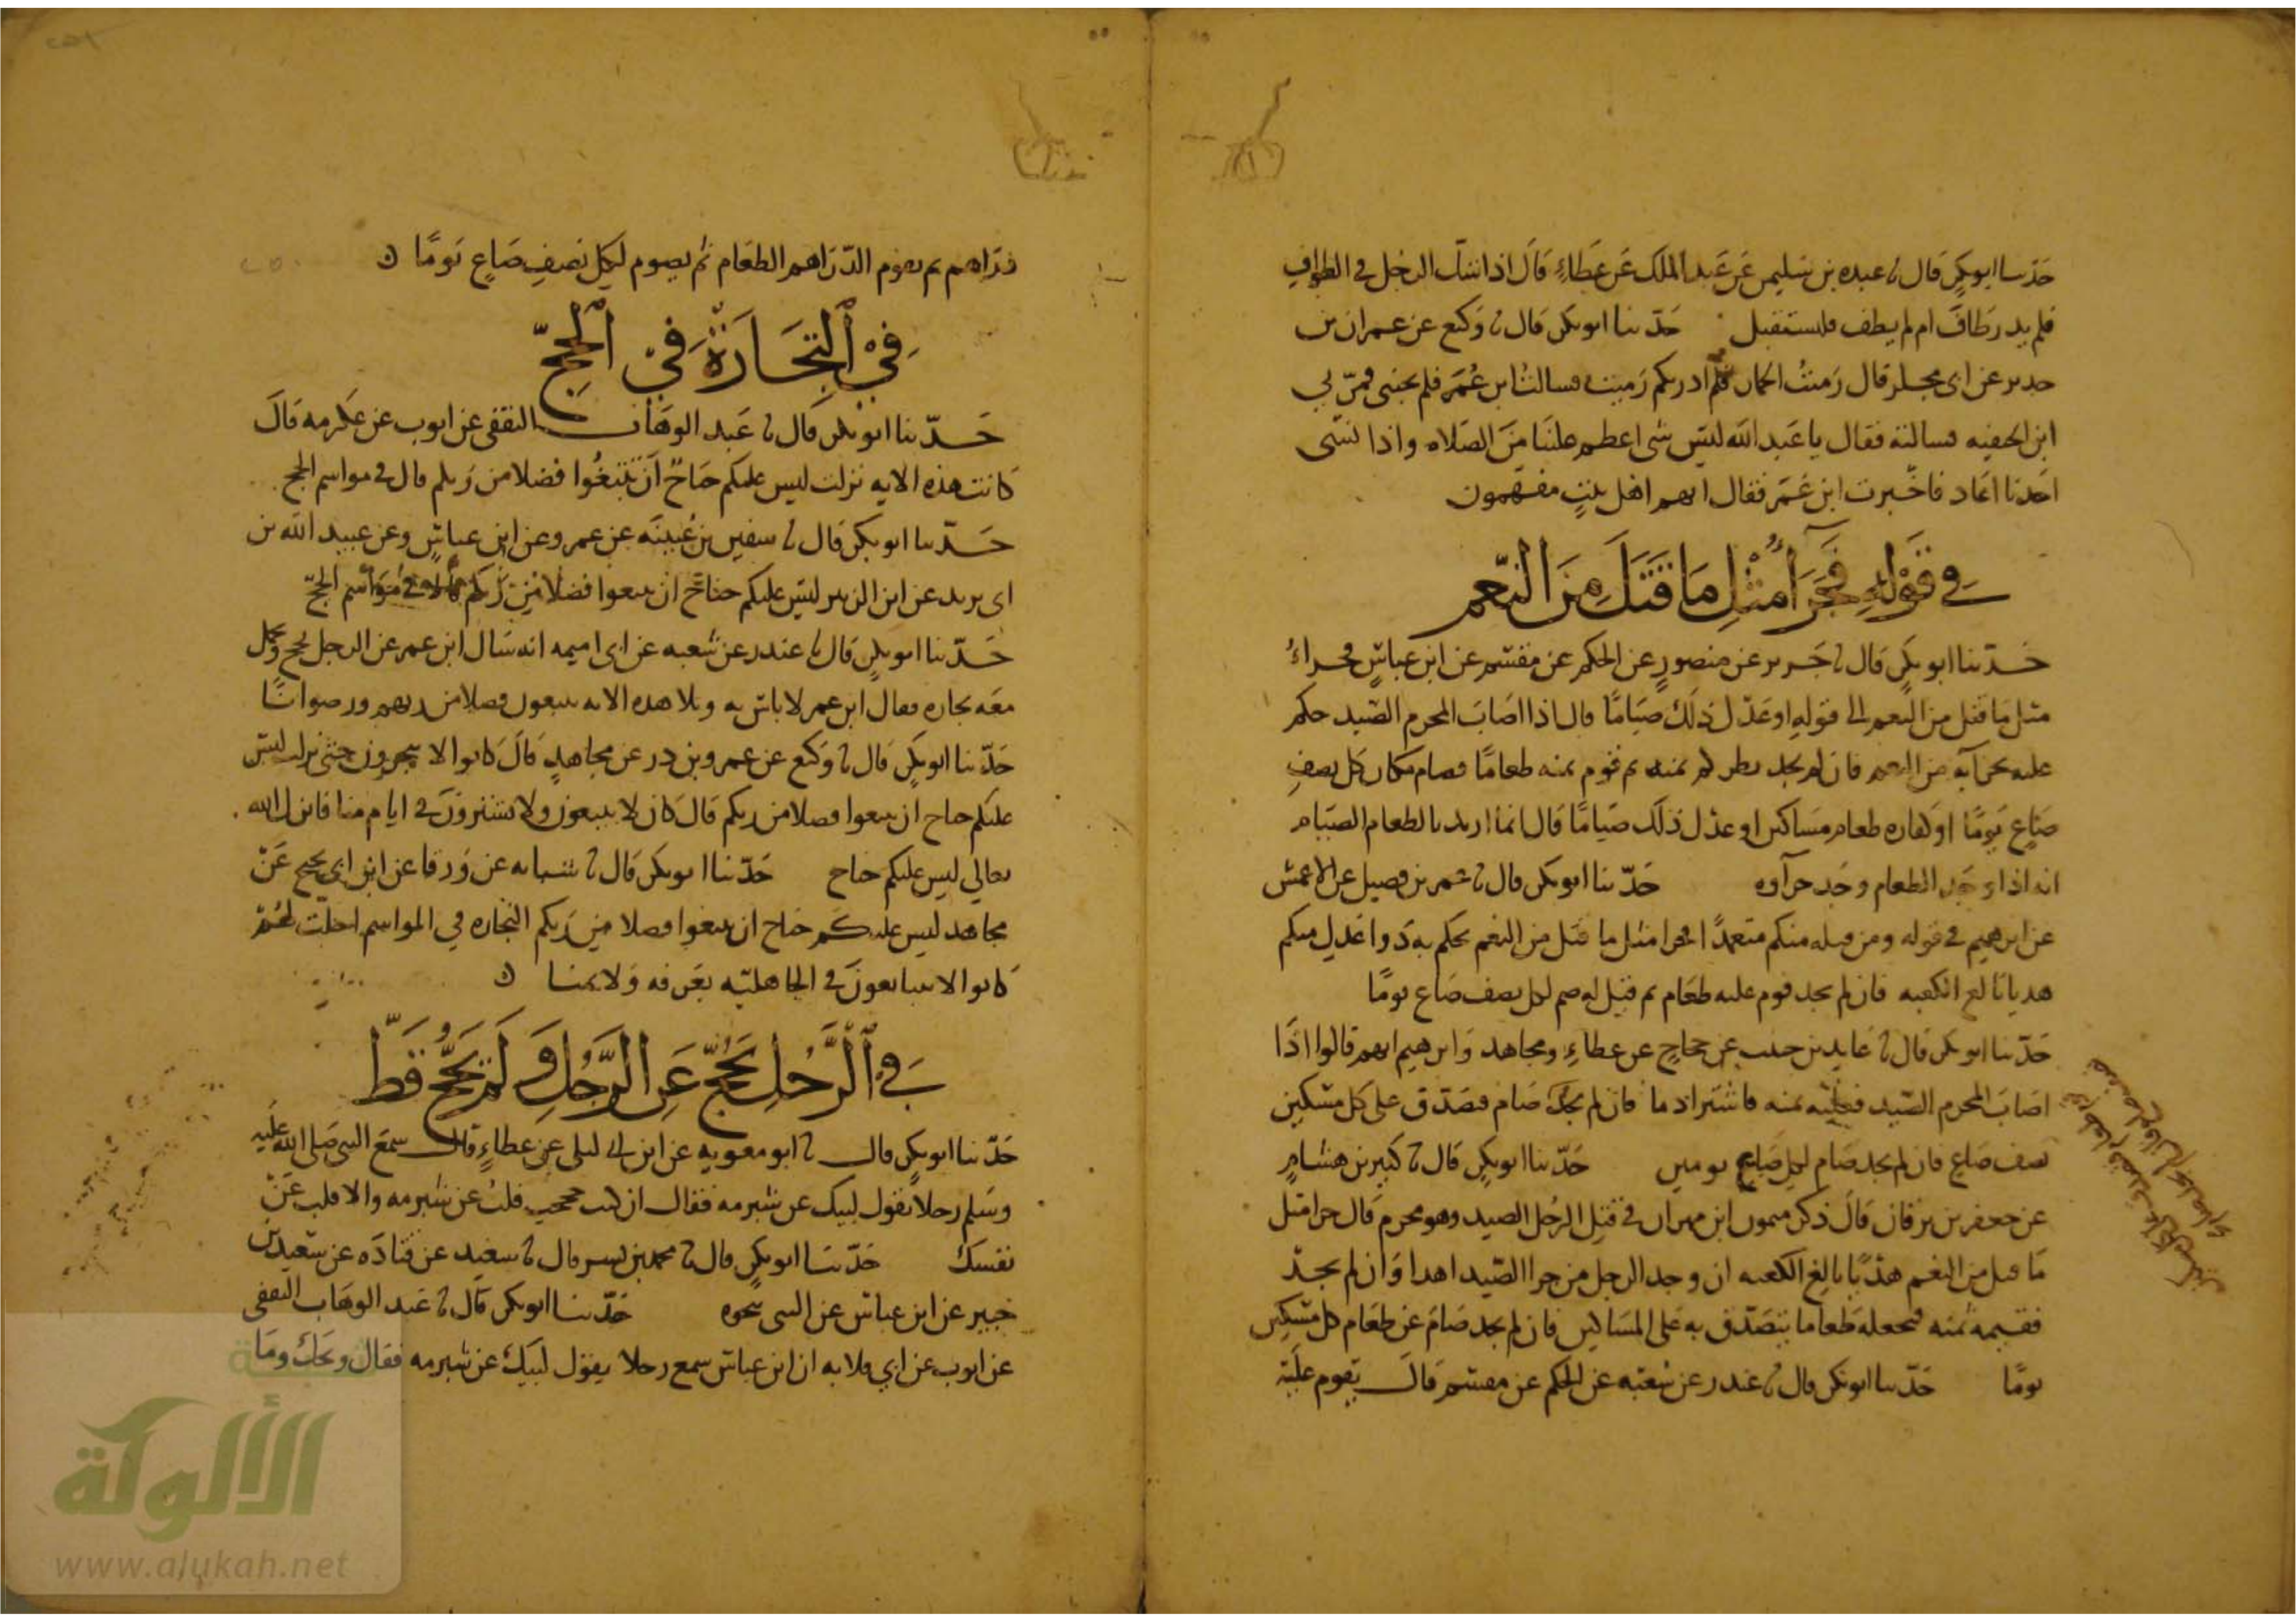 حدثنا ابوبكر قال نا عبده بن سليمن عن عبد الملك عن عطاءٍ قال اذا شك الرجل في الطواف
فلم يدر طاف ام لم يطف فليستقبل حدثنا ابوبكر قال نا وكيع عن عمران بن
حدير عن ابي مجلز قال رميتُ الجمار فلم ادر بكم رميت فسالتُ ابن عُمَر فلم يجبني فمرّ بي
ابن الحنفيه فسالته فقال يا عَبد الله ليس شي اعظم علينا من الصلاه واذا نسى
احَدنا اعاد فاخبرت ابن عُمَر فقال انهم اهل بيتٍ مفهمون
في قَوْلِهِ فَجَزَآءُ مِثْلِ مَا قَتَلَ مِنَ النّعَمِ
حدثنا ابوبكرٍ قال نا جَرير عن منصورٍ عن الحكم عن مقسم عن ابن عباسٍ فجزاءُ
مثل ما قتل من النعم الى قوله او عدل ذلك صيَامًا قال اذا اصَابَ المحرم الصيد حكم
عليه جزآيه من النعم فان لم يجد نظر كم ثمنه ثم قوم ثمنه طعامًا فصام مكان كل نصفِ
صَاعٍ يَومًا او كفاره طعام مسَاكين او عدل ذلك صيَامًا قال انما اريد بالطعام الصيام
انه اذا وجد الطعام وجد جزآوه حدثنا ابوبكر قال نا عمر بن فضيل عن الاعمش
عن ابرهيم في قوله ومن قتله منكم متعمدًا فجزا مثل ما قتل من النعم يحكم به ذوا عدل منكم
هديا بالغ الكعبه فان لم يجد قوم عليه طعَام ثم قيل له صم لكل نصف صَاع يومًا
حدثنا ابوبكر قال نا عايد بن حبيب عن حجاجٍ عن عطاءٍ ومجاهد وابرهيم انهم قالوا اذا
اصَابَ المحرم الصيد فعليه ثمنه فاشترا دما فان لم يجد صَام فتصَدق على كل مسكين
نصف صَاعٍ فان لم يجد صَام لكل صَاعٍ يومين حدثنا ابوبكرٍ قال نا كثير بن هشامٍ
عن جعفر بن برقان قال ذكر ميمون ابن مهران في قتل الرجُل الصيد وهو محرم قال جزا مثل
ما قتل من النعم هدْيًا بالغ الكعبه ان وجد الرجل من جزا الصيد اهدا وَان لم يجد
فقيمه ثمنه فجعله طعاما يتصَدق به على المسَاكين فان لم يجد صَامَ عن طعَام كل مسكين
يومًا حدثنا ابوبكر قال نا غندر عن شعبه عن الحكم عن مقسم قال يقوم عليه
دراهم ثم يقوم الدّرَاهم الطعَام ثم يصوم لكل نصفِ صَاعٍ يَومًا
فِي التِجَارَةِ فِي الْحَجّ
حَدّثنا ابوبكر قال نا عَبد الوهَاب الثقفي عن ايوب عن عكرمه قال
كانت هذه الايه نزلت ليس عليكم جناحٌ اَن تَبتَغُوا فضلا من ربكم قال في مواسم الحج
حَدّثنا ابوبكر قال نا سفين بن عُيينَه عن عمرو عن ابن عباسٍ وعن عبيد الله بن
ابي يزيد عن ابن الزبير ليس عليكم جناح ان تبتغوا فضلا من ربكم في مَوَاسم الحج
حَدّثنا ابوبكرٍ قال نا غندر عن شعبه عن ابي اميمه انه سَال ابن عمر عن الرجل يحج ويحمل
معَه تجاره فقال ابن عمر لا باس به وتلا هذه الايه يبتغون فضلا من ربهم ورضوانًا
حدّثنا ابوبكر قال نا وكيع عن عمرو بن در عن مجاهدٍ قال كانوا لا يتجرون حتى نزلت ليس
عليكم جناح ان تبتغوا فضلا من ربكم قال كان لا يبيعون ولا يشترون في ايام منا فانزل الله
تعالي ليس عليكم جناح حَدّثنا ابوبكر قال نا شبابه عن وَرقا عن ابن ابي نجيح عَنْ
مجاهد ليس عليكم جناح ان تبتغوا فضلا من ربكم التجاره في المواسم احلت لهُمْ
كانوا لا يتبايعون في الجاهليّه بعَرفه وَلا بمنا
فِي الرَّجُلِ يَحُجّ عَنِ الرَّجُلِ وَلَمْ يَحُجّ قَطّ
حَدّثنا ابوبكرٍ قال نا ابو معويه عن ابن ابي ليلى عن عطاءٍ قال سمعَ النبي صَلى الله عَلَيه
وسَلم رجلا يقول لبيك عن شبرمه فقال ان كنت حججت فلبّ عن شبرمه والا فلب عَنْ
نفسكَ حَدّثنا ابوبكرٍ قال نا محمد بن بسر قال نا سعيد عن قتادَه عن سَعيد بن
جبير عن ابن عباس عن النبي نحوه حَدّثنا ابوبكر قال نا عبد الوهَاب الثقفي
عن ايوب عن ابي قلابه ان ابن عباس سمع رجلا يقول لبيك عن شبرمه فقال ويحك ومَا
شبكة
الألوكة
www.alukah.net